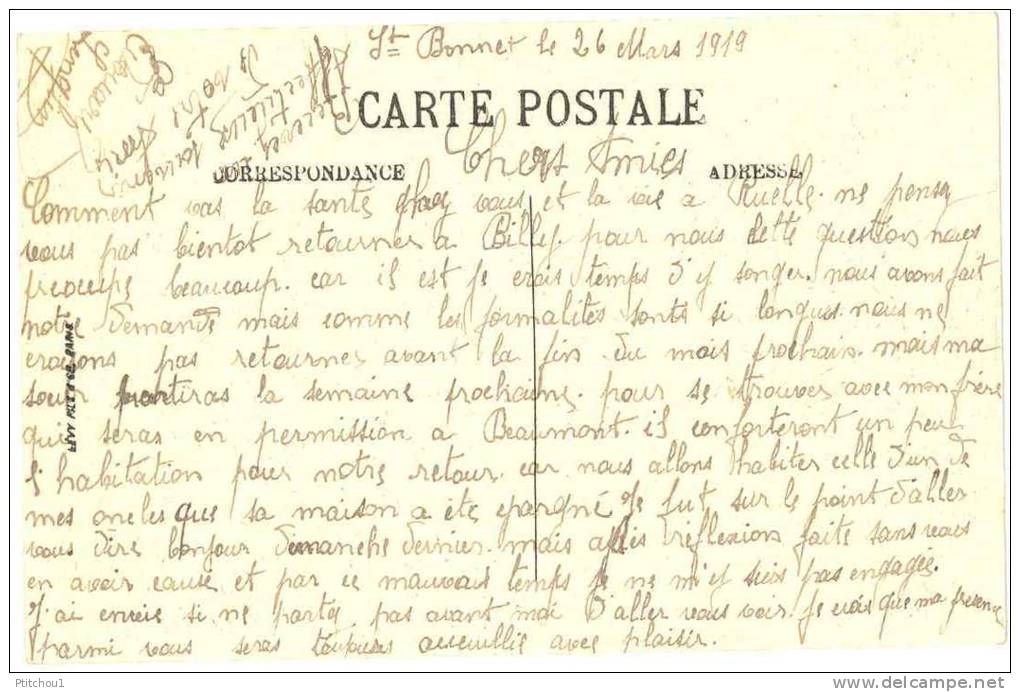 St Bonnet le 26 Mars 1919
CARTE POSTALE
Chers Amies
CORRESPONDANCE
ADRESSE
Comment vas la sante chez vous et la vie a Ruelle. ne pensez
vous pas bientot retournes a Billy. pour nous cette question nous
preocupe beaucoup. car il est je crois temps d'y songer. nous avons fait
notre demande mais comme les formalites sonts si longues. nous ne
crayons pas retournes avant la fin du mois prochain. mais ma
soeur partiras la semaine prochaine. pour se trouver avec mon frère
qui seras en permission a Beaumont. il conforteront un peu
l'habitation pour notre retour. car nous allons habiter celle d'un de
mes oncles que sa maison a ete epargné. Je fut sur le point d'aller
vous dire bonjour dimanche dernier. mais apres réflexion faite sans vous
en avoir causé et par ce mauvais temps je ne m'y suis pas engagée.
J'ai envie si ne partez pas avant moi d'aller vous voir. Je crois que ma presence
parmi vous seras toujours accueillie avec plaisir.
Recevez
Affectueux
souvenirs
LEVY FILS & CIE PARIS
Ptitchou1
www.delcampe.net